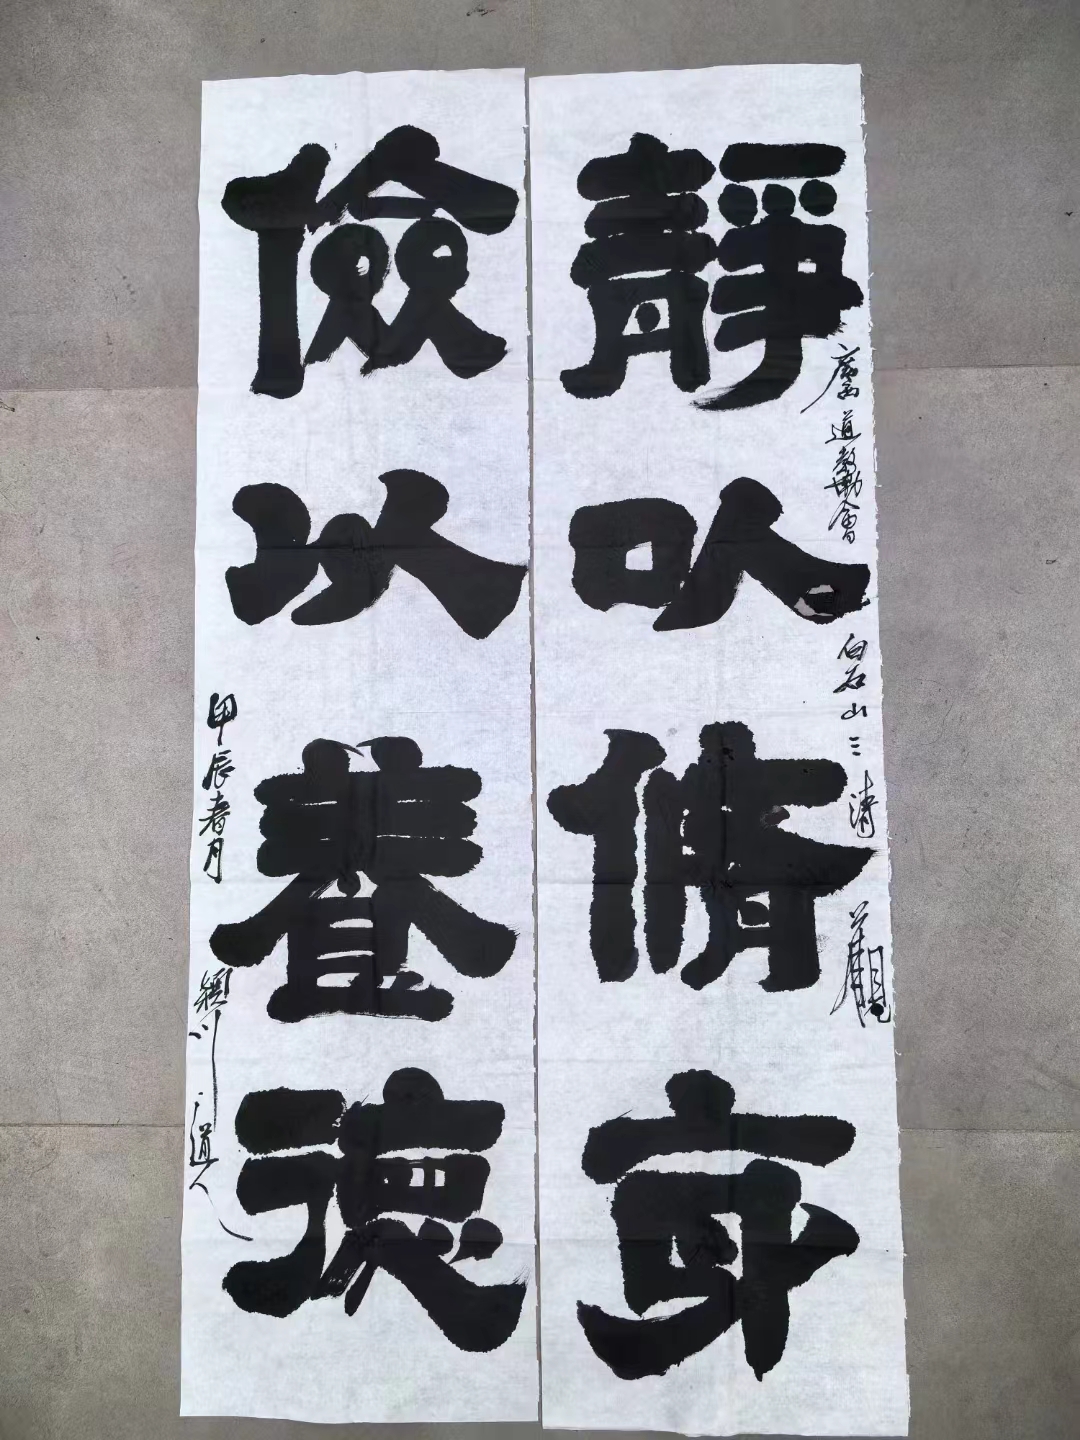 靜以脩身
廣西道教協會
白石山三清觀
儉以養德
甲辰春月
潁川道人